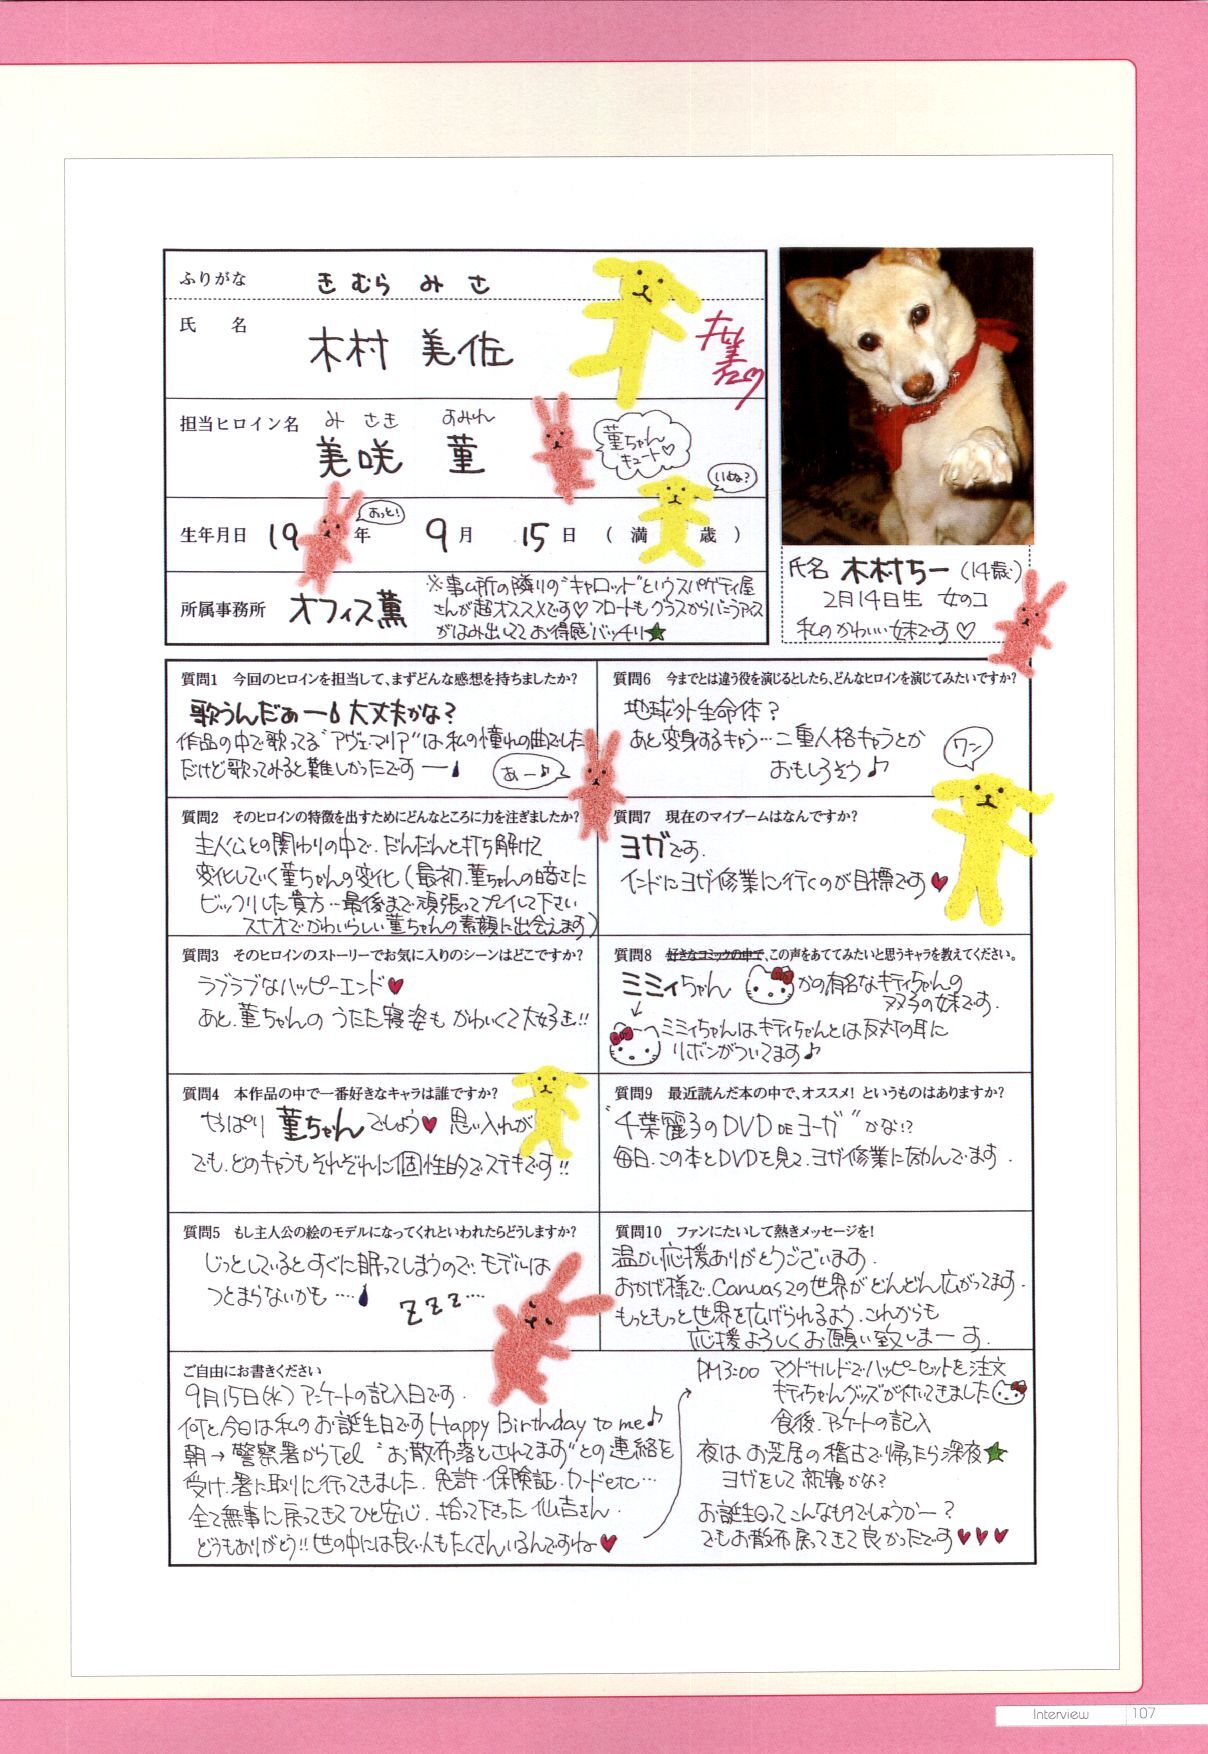 ふりがな きむら みさ
氏 名 木村 美佐
担当ヒロイン名 みさき すみれ
美咲 菫
菫ちゃん
キュート♡
いぬ?
おっと!
生年月日 19 年 9月 15日 ( 満 歳 )
所属事務所 オフィス薫
※事ム所の隣りの"キャロット"というスパゲティ屋
さんが超オススメです♡フロートもグラスからバニラアイス
がはみ出してて お得感バッチリ★
氏名 木村ちー (14歳)
2月14日生 女のコ
私のかわいい妹です♡
質問1 今回のヒロインを担当して、まずどんな感想を持ちましたか?
歌うんだぁー 大丈夫かな?
作品の中で歌ってる"アヴェ・マリア"は私の憧れの曲でした
だけど歌ってみると難しかったですー
あー♪
質問2 そのヒロインの特徴を出すためにどんなところに力を注ぎましたか?
主人公との関わりの中で、だんだんと打ち解けて
変化していく菫ちゃんの変化(最初、菫ちゃんの暗さに
ビックリした貴方…最後まで頑張ってプレイして下さい
スナオでかわいらしい菫ちゃんの素顔に出会えます)
質問3 そのヒロインのストーリーでお気に入りのシーンはどこですか?
ラブラブなハッピーエンド♥
あと、菫ちゃんの うたた寝姿も かわいくて大好き!!
質問4 本作品の中で一番好きなキャラは誰ですか?
やっぱり 菫ちゃんでしょう♥ 思い入れが
でも、どのキャラもそれぞれに個性的でステキです!!
質問5 もし主人公の絵のモデルになってくれといわれたらどうしますか?
じっとしているとすぐに眠ってしまうので、モデルは
つとまらないかも……
ZZZ…
質問6 今までとは違う役を演じるとしたら、どんなヒロインを演じてみたいですか?
地球外生命体?
あと変身するキャラ…二重人格キャラとか
おもしろそう♪
ワン
質問7 現在のマイブームはなんですか?
ヨガです.
インドにヨガ修業に行くのが目標です♥
質問8 好きなコミックの中で、この声をあててみたいと思うキャラを教えてください。
ミミィちゃん かの有名なキティちゃんの
フタ子の妹です.
ミミィちゃんはキティちゃんとは反対の耳に
リボンがついてます♪
質問9 最近読んだ本の中で、オススメ! というものはありますか?
"千葉麗子のDVD DE ヨーガ"かな!?
毎日、この本とDVDを見て、ヨガ修業に励んでます.
質問10 ファンにたいして熱きメッセージを!
温かい応援ありがとうございます.
おかげ様で、Canvas2の世界がどんどん広がってます.
もっともっと世界を広げられるよう、これからも
応援よろしくお願い致しまーす.
ご自由にお書きください
9月15日(水) アンケートの記入日です.
何と今日は私のお誕生日です Happy Birthday to me♪
朝→警察署からTel "お散布落とされてます"との連絡を
受け、署に取りに行ってきました. 免許・保険証・カードetc…
全て無事に戻ってきてひと安心. 拾って下さった 仙吉さん.
どうもありがとう!! 世の中には良い人もたくさんいるんですね♥
PM3:00 マクドナルドでハッピーセットを注文
キティちゃんグッズが付いてきました
食後、アンケートの記入
夜は お芝居の稽古で帰ったら深夜★
ヨガをして就寝かな?
お誕生日ってこんなものでしょうかー?
でもお散布戻ってきて良かったです♥♥♥
Interview 107